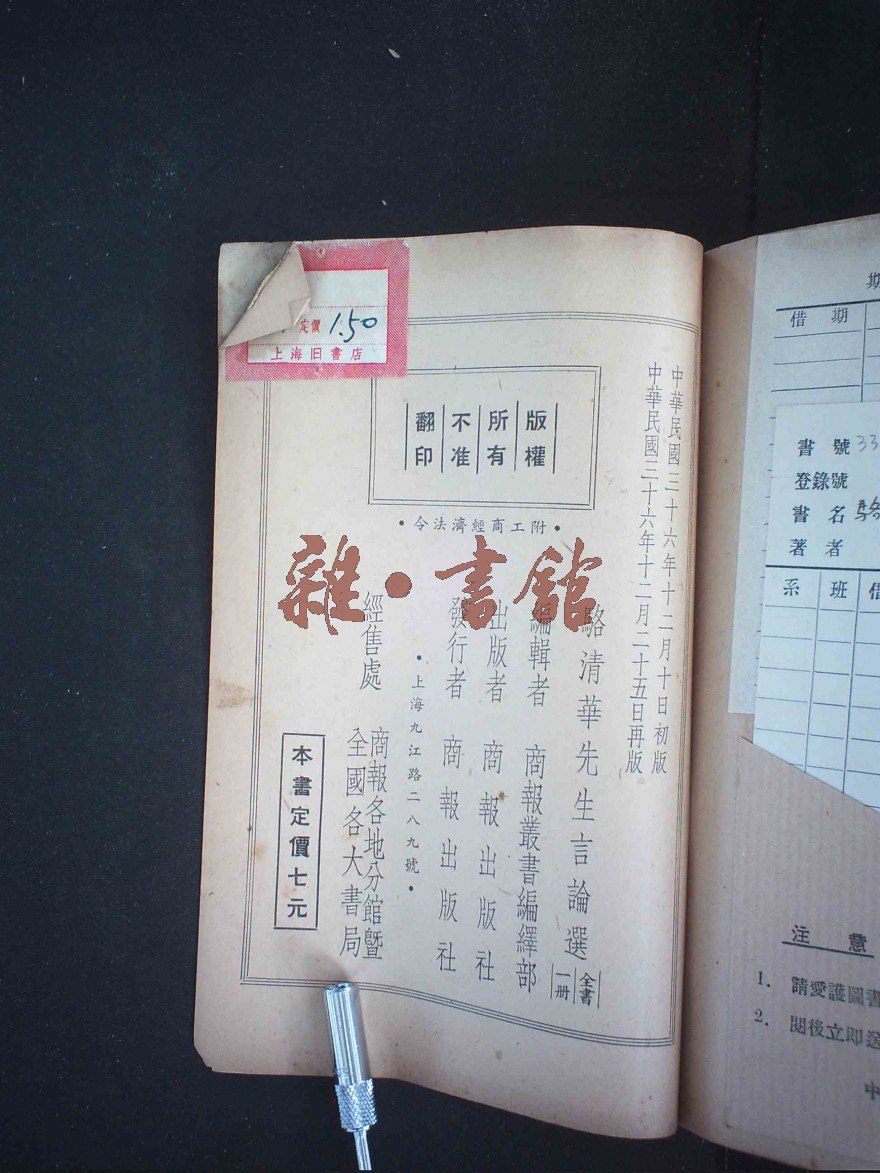 中華民國三十六年十二月十日初版
中華民國三十六年十二月二十五日再版
駱清華先生言論選
全書
一册
編輯者 商報叢書編繹部
出版者 商報出版社
發行者 商報出版社
•上海九江路二八九號•
經售處
商報各地分館暨
全國各大書局
本書定價七元
版權
所有
不准
翻印
•附工商經濟法令•
定價 1.50
上海旧書店
雜•書館
期
借期
書號 33
登錄號
書名 駱
著者
系 班 借
注意
1. 請愛護圖書
2. 閱後立即送
中